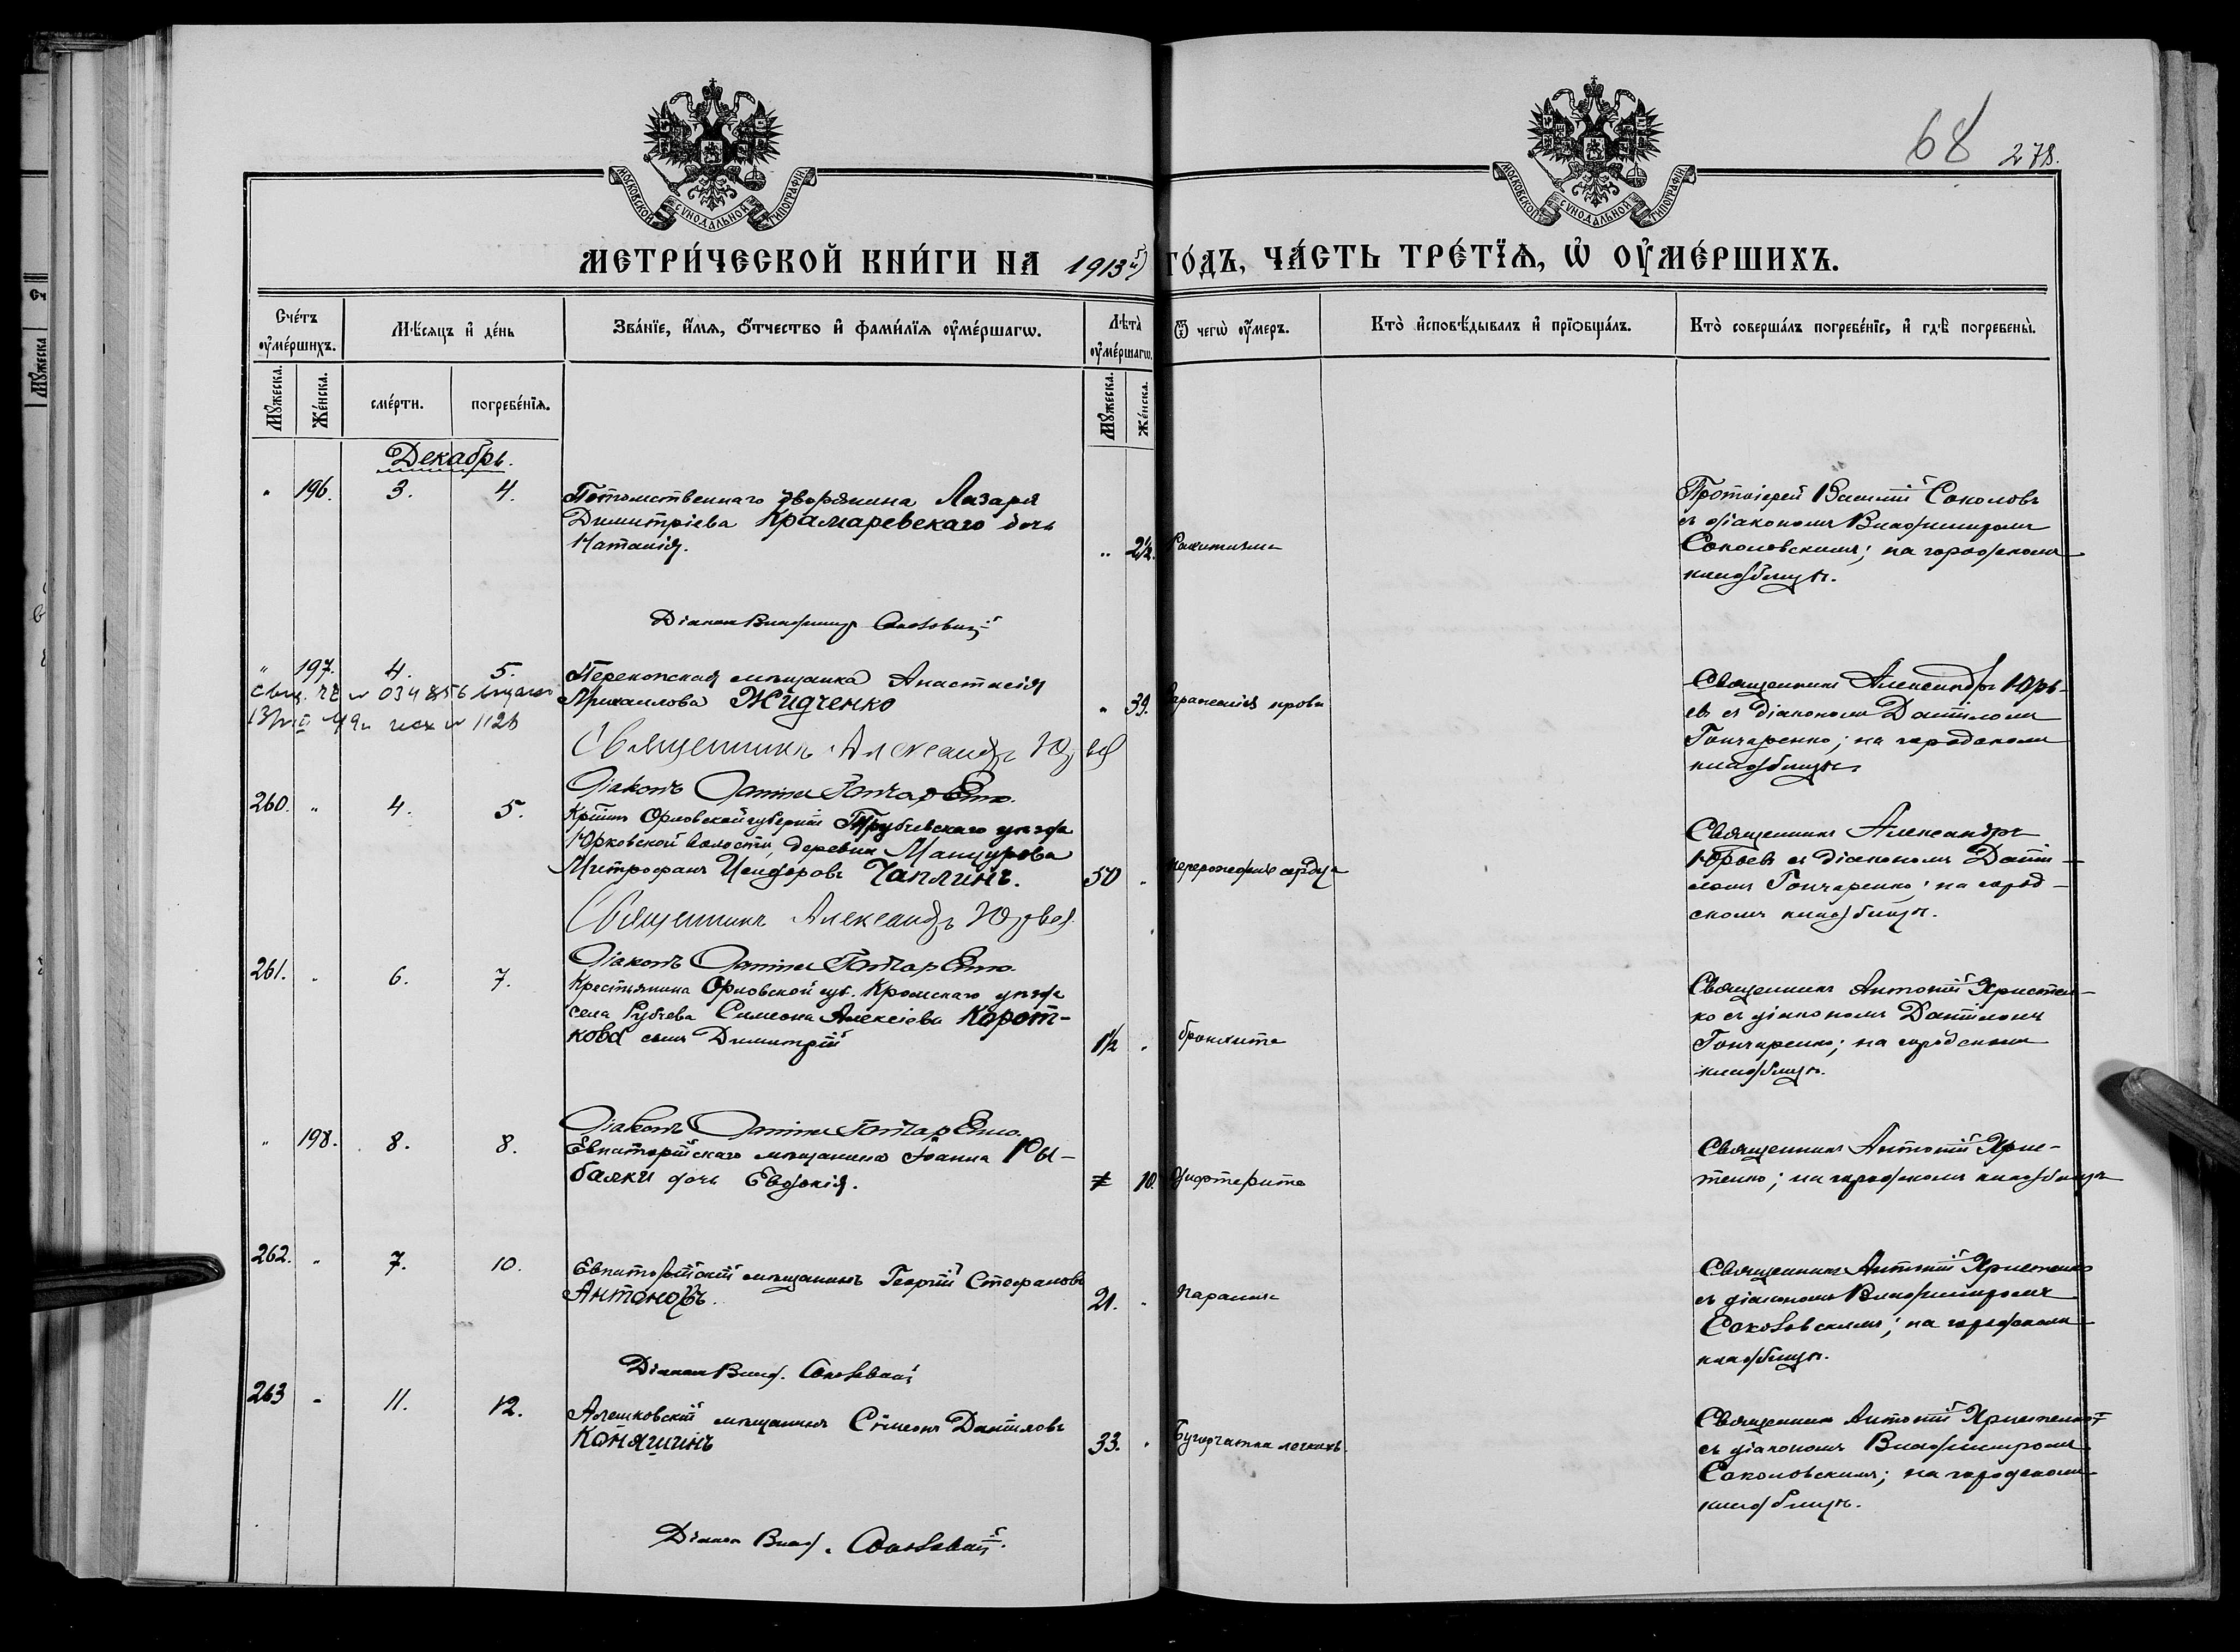 68 278.
МОСКОВСКОЙ СУНОДАЛЬНОЙ ТИПОГРАФІИ
МОСКОВСКОЙ СУНОДАЛЬНОЙ ТИПОГРАФІИ
МЕТРИ́ЧЕСКОЙ КНИ́ГИ НА 1913й ГО́ДЪ, ЧА́СТЬ ТРЕ́ТЇѦ, Ѡ҆ ОУ҆МЕ́РШИХЪ.
Сче́тъ оу҆ме́ршихъ.
Мѣ́сяцъ и҆ де́нь
Зва́нїе, и҆́мѧ, ѻ҆́тчество и҆ фами́лїѧ оу҆ме́ршагѡ.
Лѣ́та оу҆ме́ршагѡ.
Ѿ чегѡ̀ оу҆́меръ.
Кто̀ и҆сповѣ́дывалъ и҆ прїѻбща́лъ.
Кто̀ соверша́лъ погребе́нїе, и҆ гдѣ̀ погребены̀.
Мꙋ́жеска. Же́нска. сме́рти. погребе́нїѧ. Мꙋ́жеска. Же́нска.
Декабрь.
" 196. 3. 4. Потомственнаго дворянина Лазаря
Димитріева Крамаревскаго дочь
Наталія. " 2½. Рахитизма
Протоіерей Василій Соколовъ
съ діакономъ Владимиромъ
Соколовскимъ; на городскомъ
кладбищѣ.
Діаконъ Владимир Соколовскій
" 197. 4. 5. Перекопская мѣщанка Анастасія
Михаилова Жидченко " 39. Зараженія крови
034856
исх № 1126
Священникъ Александръ Юрь-
евъ съ діакономъ Даніиломъ
Гончаренко; на городскомъ
кладбищѣ.
Священникъ Александръ Юрьев
Діаконъ Даніилъ Гончаренко.
260. " 4. 5. Кр-нинъ Орловской губерніи Трубчевскаго уѣзда
Юрковской волости, деревни Манцурова
Митрофанъ Исидоровъ Чаплинъ. 50 " перерожденія сердца
Священникъ Александръ
Юрьевъ съ діакономъ Дані-
иломъ Гончаренко; на город-
скомъ кладбищѣ.
Священникъ Александръ Юрьев
Діаконъ Даніилъ Гончаренко.
261. " 6. 7. Крестьянина Орловской губ. Кромскаго уѣзда
села Рубчева Симеона Алексіева Корот-
кова сынъ Димитрій 1½ " бронхита
Священникъ Антоній Христен-
ко съ діакономъ Даніиломъ
Гончаренко; на городскомъ
кладбищѣ.
Діаконъ Даніилъ Гончаренко.
" 198. 8. 8. Евпаторійскаго мѣщанина Іоанна Ры-
балки дочь Евдокія. 10. Дифтерита
Священникъ Антоній Хрис-
тенко; на городскомъ кладбищѣ
262. " 7. 10. Евпаторійскій мѣщанинъ Георгій Стефановъ
Антоновъ. 21. " Паралича
Священникъ Антоній Христенко
съ діакономъ Владимиромъ
Соколовскимъ; на городскомъ
кладбищѣ.
Діаконъ Влад. Соколовскій
263 " 11. 12. Алешковскій мѣщанинъ Симеонъ Даніиловъ
Коняшинъ 33. " Бугорчатки легкихъ.
Священникъ Антоній Христенко
съ діакономъ Владимиромъ
Соколовскимъ; на городскомъ
кладбищѣ.
Діаконъ Влад. Соколовскій.